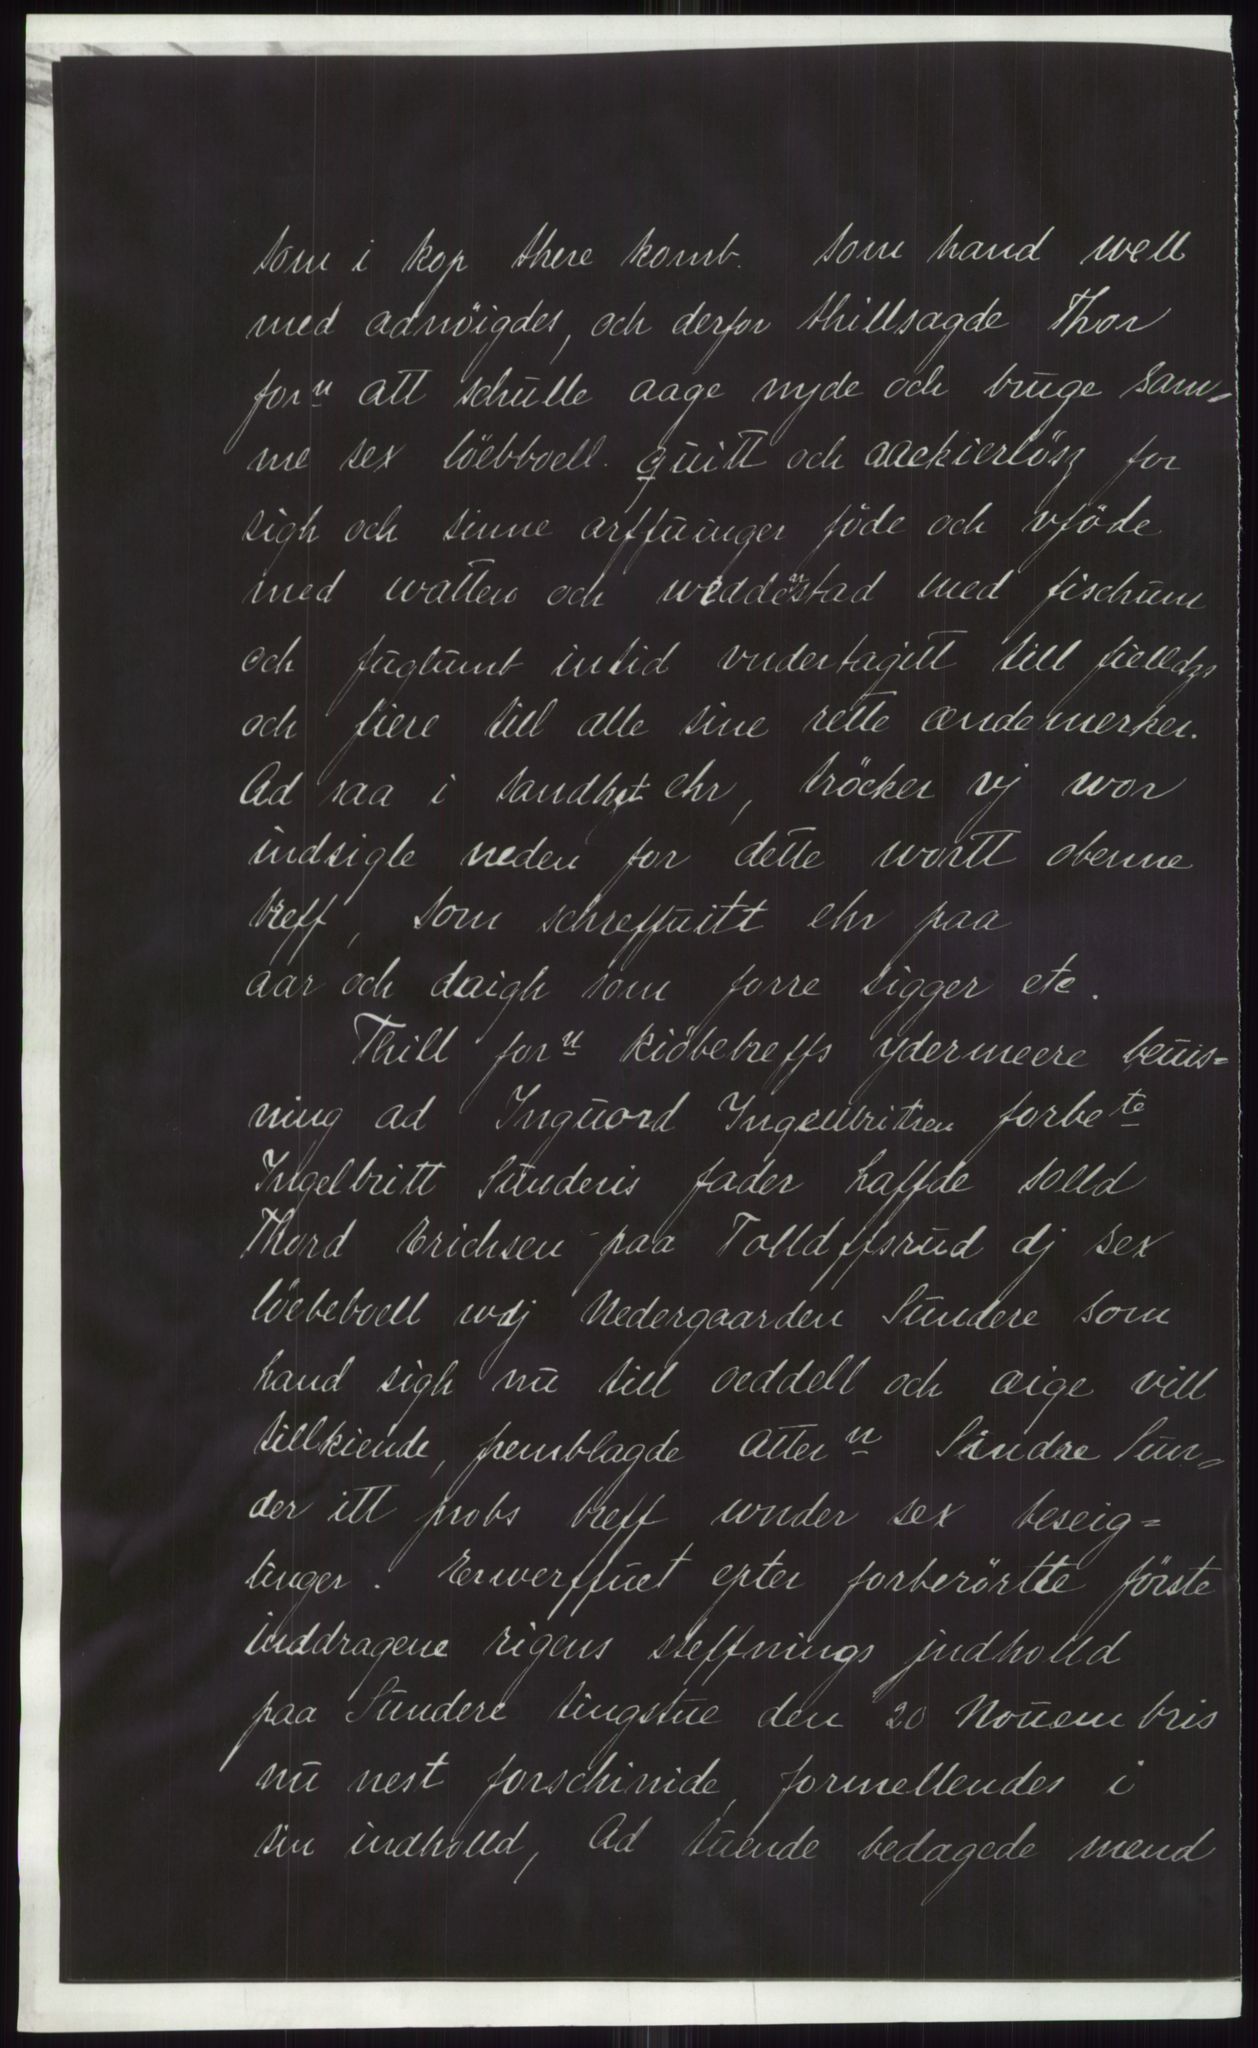 som i kop there komb. som hand well
med adnöigdes, och derfor thillsagde Thor
forn att schulle aage nyde och bruge sam=
me sex löebboell. quitt och aackierlösz for
sigh och sinne arffuinger föde och vföde
med watten och weddenstad med fischum
och fuglumb intid vndertagitt till fielldzs
och fiere till alle sine rette ændemerker.
Ad saa i sandhet ehr, tröcker vj wor
indsigle neden for dette wortt obenne
breff, som schreffuitt ehr paa
aar och daigh som forre sigger etc.
Thill forn kiöbebreffs ydermeere beuis=
ning ad Inguord Ingellbritsen forbete
Ingelbritt Sunderis fader haffde solld
Thord Erichsen paa Tolldffsrud dj sex
löebeboell wdj Nedergaarden Sundere som
hand sigh nu till oeddell och æige vill
tillkiende, fremblagde atter n Sindre Sun=
der itt probs breff wnder sex beseig=
linger. Erwerffuet epter forberörtte förste
inddragene rigens steffnings jndholld
paa Sundere tingstue den 20 Nouembris
nu nest forschinide, formellendes i
sin indholld, Ad tuende bedagede mend